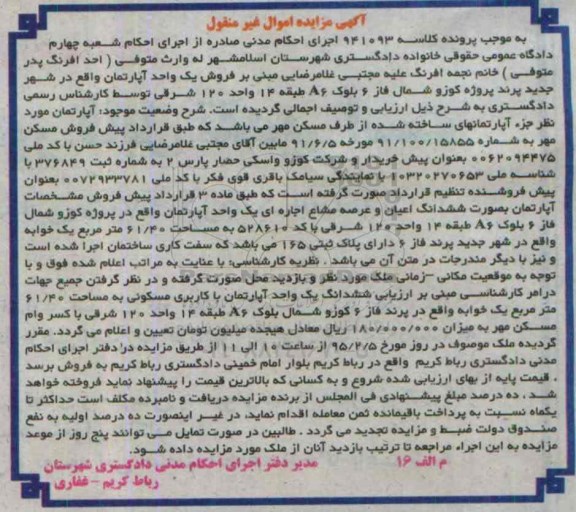 آگهی مزایده اموال غیر منقول
به موجب پرونده کلاسه ۹۴۱۰۹۳ اجرای احکام مدنی صادره از اجرای احکام شعبه چهارم
دادگاه عمومی حقوقی خانواده دادگستری شهرستان اسلامشهر له وراث متوفی ( احد افرنگ پدر
متوفی ) خانم نجمه افرنگ علیه مجتبی غلامرضایی مبنی بر فروش یک واحد آپارتمان واقع در شهر
جدید پرند پروژه کوزو شمال فاز ۶ بلوک A۶ طبقه ۱۴ واحد ۱۲۰ شرقی توسط کارشناس رسمی
دادگستری به شرح ذیل ارزیابی و توصیف اجمالی گردیده است. شرح وضعیت موجود: آپارتمان مورد
نظر جزء آپارتمانهای ساخته شده از طرف مسکن مهر می باشد که طبق قرارداد پیش فروش مسکن
مهر به شماره ۹۱/۱۰۰/۱۵۸۵۵ مورخه ۹۱/۶/۵ مابین آقای مجتبی غلامرضایی فرزند حسن با کد ملی
۰۰۶۲۰۹۴۴۷۵ بعنوان پیش خریدار و شرکت کوزو واسکی حصار پارس ۲ به شماره ثبت ۳۷۶۸۴۹ با
شناسه ملی ۱۰۳۲۰۲۷۰۶۵۳ با نمایندگی سیامک باقری قوی فکر با کد ملی ۰۰۷۲۹۳۳۷۸۱ بعنوان
پیش فروشنده تنظیم قرارداد صورت گرفته است که طبق ماده ۳ قرارداد پیش فروش مشخصات
آپارتمان بصورت ششدانگ اعیان و عرصه مشاع اجاره ای یک واحد آپارتمان واقع در پروژه کوزو شمال
فاز ۶ بلوک A۶ طبقه ۱۴ واحد ۱۲۰ شرقی با کد ۵۲۸۶۱۰ به مساحت ۶۱/۴۰ متر مربع یک خوابه
واقع در شهر جدید پرند فاز ۶ دارای پلاک ثبتی ۱۶۵ می باشد که سفت کاری ساختمان اجرا شده است
و نیز با دیگر مندرجات در متن آن می باشد . نظریه کارشناسی: با عنایت به مراتب اعلام شده فوق و با
توجه به موقعیت مکانی –زمانی ملک مورد نظر و بازدید محل صورت گرفته و در نظر گرفتن جمیع جهات
درامر کارشناسی مبنی بر ارزیابی ششدانگ یک واحد آپارتمان با کاربری مسکونی به مساحت ۶۱/۴۰
متر مربع یک خوابه واقع در پرند فاز ۶ کوزو شمال بلوک A۶ طبقه ۱۴ واحد ۱۲۰ شرقی با کسر وام
مسکن مهر به میزان ۱۸۰/۰۰۰/۰۰۰ ریال معادل هیجده میلیون تومان تعیین و اعلام می گردد. مقرر
گردیده ملک موصوف در روز مورخ ۹۵/۲/۵ از ساعت ۱۰ الی ۱۱ از طریق مزایده در دفتر اجرای احکام
مدنی دادگستری رباط کریم واقع در رباط کریم بلوار امام خمینی دادگستری رباط کریم به فروش برسد
. قیمت پایه از بهای ارزیابی شده شروع و به کسانی که بالاترین قیمت را پیشنهاد نماید فروخته خواهد
شد . ده درصد مبلغ پیشنهادی فی المجلس از برنده مزایده دریافت و نامبرده مکلف است حداکثر تا
یکماه نسبت به پرداخت باقیمانده ثمن معامله اقدام نماید. در غیر اینصورت ده درصد اولیه به نفع
صندوق دولت ضبط و مزایده تجدید می گردد . طالبین در صورت تمایل می توانند پنج روز از موعد
مزایده به این اجراء مراجعه تا ترتیب بازدید آنان از ملک مورد مزایده داده شود.
م الف ۱۶ مدیر دفتر اجرای احکام مدنی دادگستری شهرستان
رباط کریم – غفاری